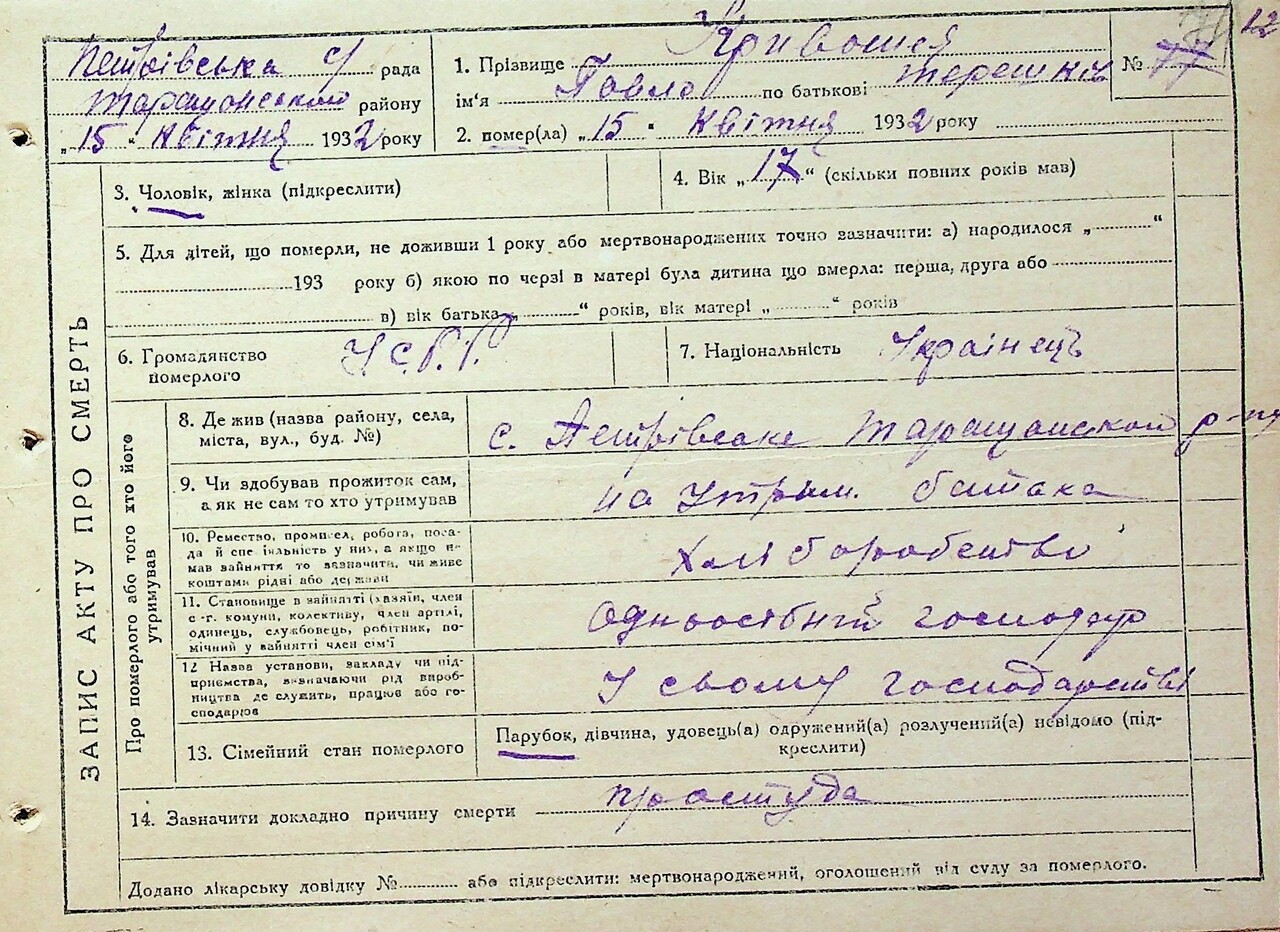 12
Петрівська с/ рада
Таращанського району
„15 " квітня 1932 року
1. Прізвище Кривошея
ім'я Павло по батькові терешків
2. помер(ла) „15 " квітня 1932 року
№ 77
3. Чоловік, жінка (підкреслити)
4. Вік „17“ (скільки повних років мав)
5. Для дітей, що померли, не доживши 1 року або мертвонароджених точно зазначити: а) народилося „..........“
..........193 року б) якою по черзі в матері була дитина що вмерла: перша, друга або
в) вік батька „..........“ років, вік матері „..........“ років
6. Громадянство померлого У.С.Р.Р.
7. Національність Українець
ЗАПИС АКТУ ПРО СМЕРТЬ
Про померлого або того хто його утримував
8. Де жив (назва району, села,
міста, вул., буд. №)
с. Петрівське Таращанського р-ну
9. Чи здобував прожиток сам,
а як не сам то хто утримував
на утрим. батька
10. Ремество, промисел, робота, поса-
да й спе іяльність у них, а якщо не
мав вайняття то зазначити, чи живе
коштами рідні або держави
Хліборобство
11. Становище в вайнятті (хазяїн, член
с-г. комуни, колективу, член артілі,
одинець, службовець, робітник, по-
мічний у вайнятті член сім'ї
одноосібний господар
12 Назва установи, закладу чи під-
приємства, визначаючи рід вироб-
ництва де служить, працює або го-
сподарює
У сьому господарстві
13. Сімейний стан померлого
Парубок, дівчина, удовець(а) одружений(а) розлучений(а) невідомо (під-
креслити)
14. Зазначити докладно причину смерти простуда
Додано лікарську довідку №.......... або підкреслити: мертвонароджений, оголошений від суду за померлого.